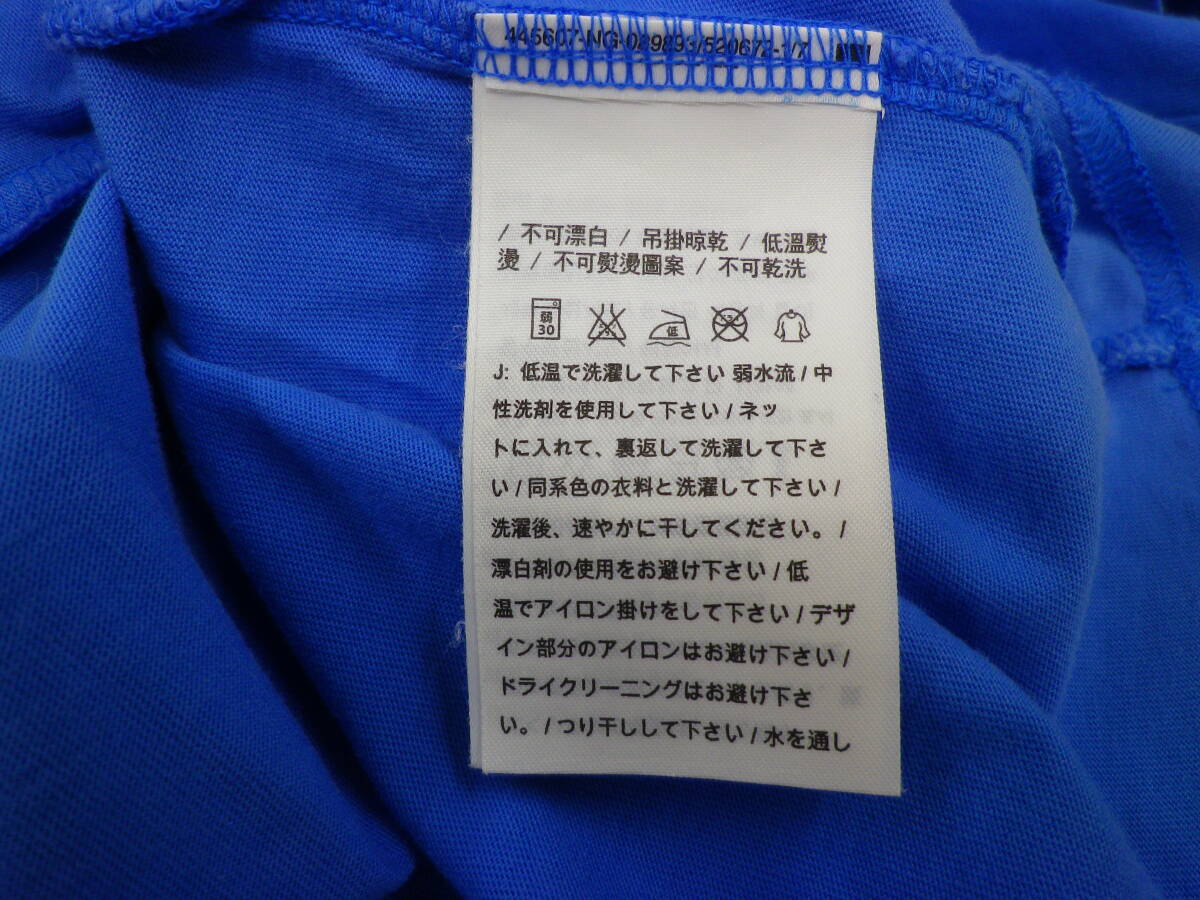 445607-NG-029893/520672-1/7
/ 不可漂白 / 吊掛晾乾 / 低溫熨
燙 / 不可熨燙圖案 / 不可乾洗
弱
30
低
J: 低温で洗濯して下さい 弱水流 / 中
性洗剤を使用して下さい / ネッ
トに入れて、裏返して洗濯して下さ
い / 同系色の衣料と洗濯して下さい /
洗濯後、速やかに干してください。 /
漂白剤の使用をお避け下さい / 低
温でアイロン掛けをして下さい / デザ
イン部分のアイロンはお避け下さい /
ドライクリーニングはお避け下さ
い。 / つり干しして下さい / 水を通し